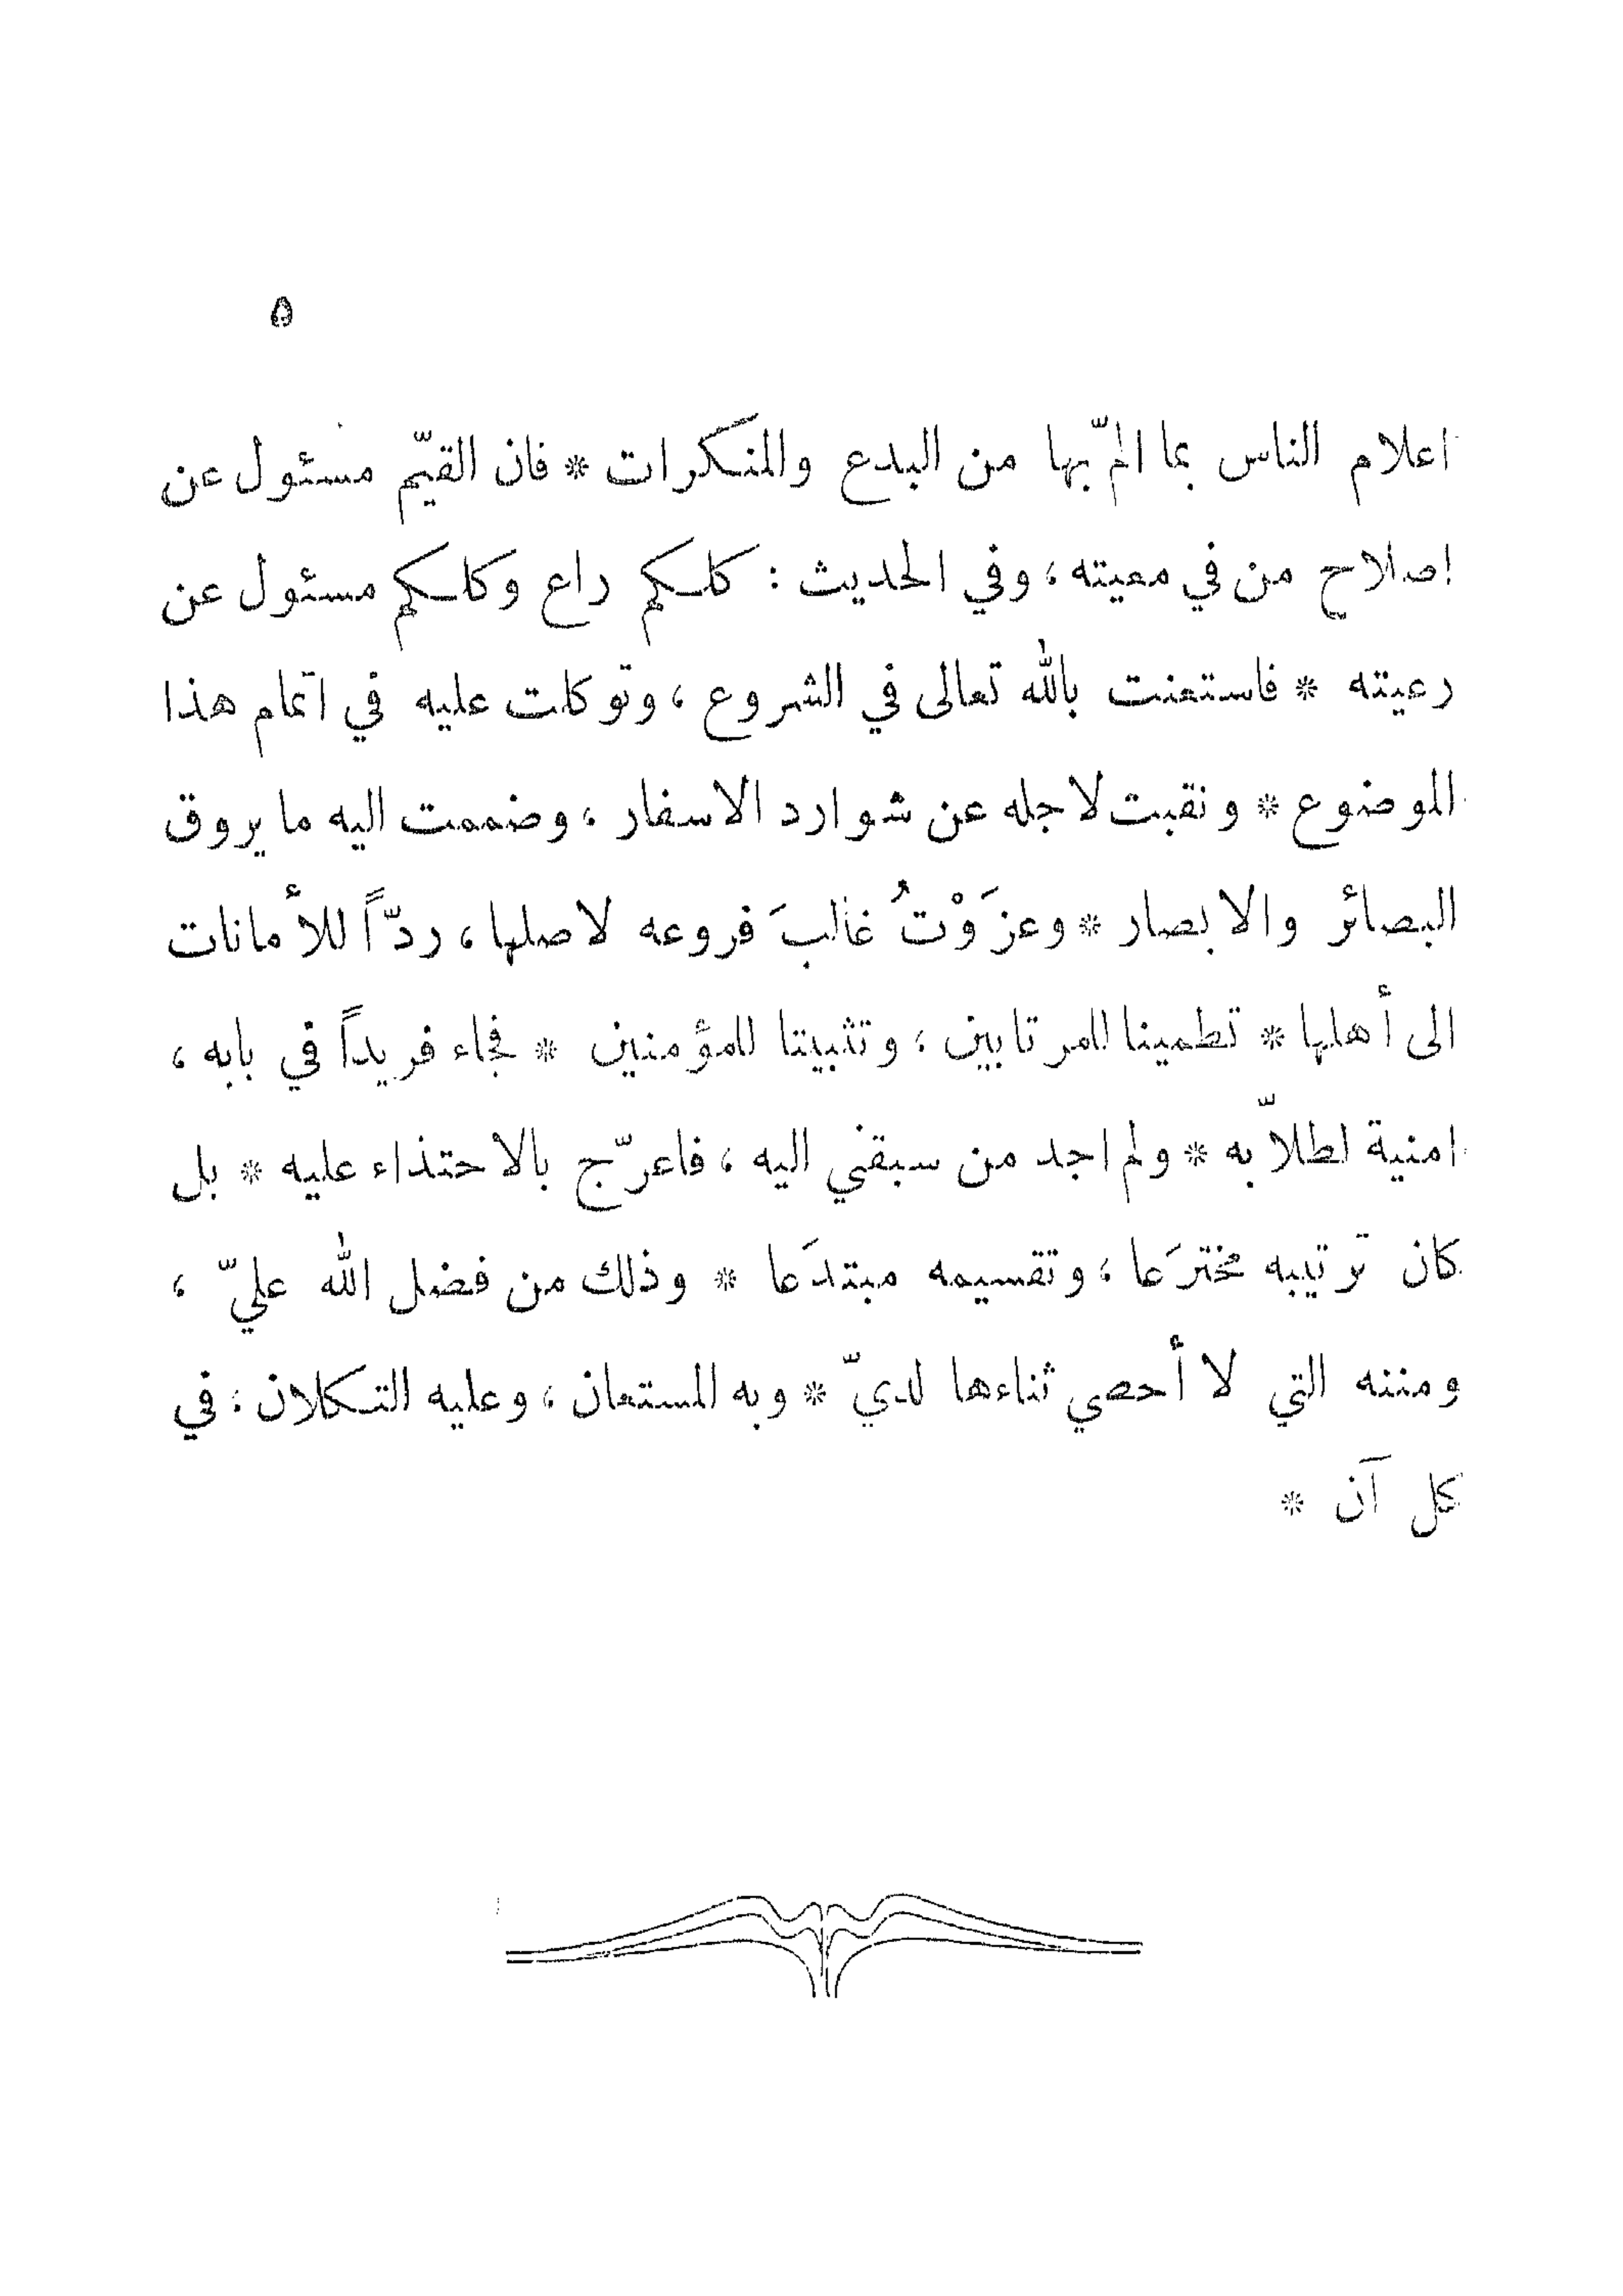 ٥
اعلام الناس بما المّ بها من البدع والمنكرات * فان القيّم مسئول عن
اصلاح من في معيته ، وفي الحديث : كلكم راع وكلكم مسئول عن
رعيته * فاستعنت بالله تعالى في الشروع ، وتوكلت عليه في اتمام هذا
الموضوع * ونقبت لاجله عن شوارد الاسفار ، وضممت اليه ما يروق
البصائر والابصار * وعزَوْتُ غالبَ فروعه لاصلها ، ردّاً للأمانات
الى أهلها * تطمينا للمرتابين ، وتثبيتا للمؤمنين * فجاء فريداً في بابه ،
امنية لطلاّبه * ولم اجد من سبقني اليه ، فاعرّج بالاحتذاء عليه * بل
كان ترتيبه مخترَعا ، وتقسيمه مبتدَعا * وذلك من فضل الله عليّ ،
ومننه التي لا أحصي ثناءها لديّ * وبه المستعان ، وعليه التكلان ، في
كل آن *